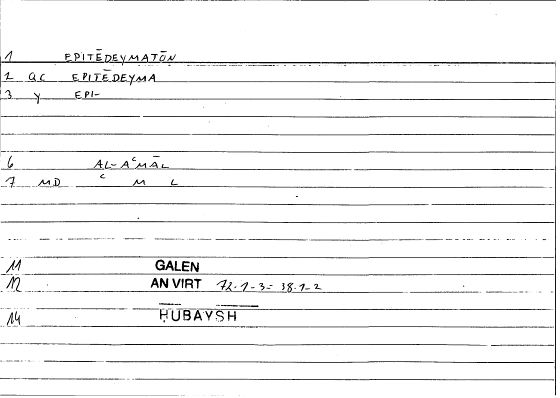 1 EPITĒDEYMATŌN
2 QC EPITĒDEYMA
3 Y EPI-
6 AL-AʿMĀL
7 MD ʿ M L
11 GALEN
12 AN VIRT 72.1-3 = 38.1-2
14 ḤUBAYSH